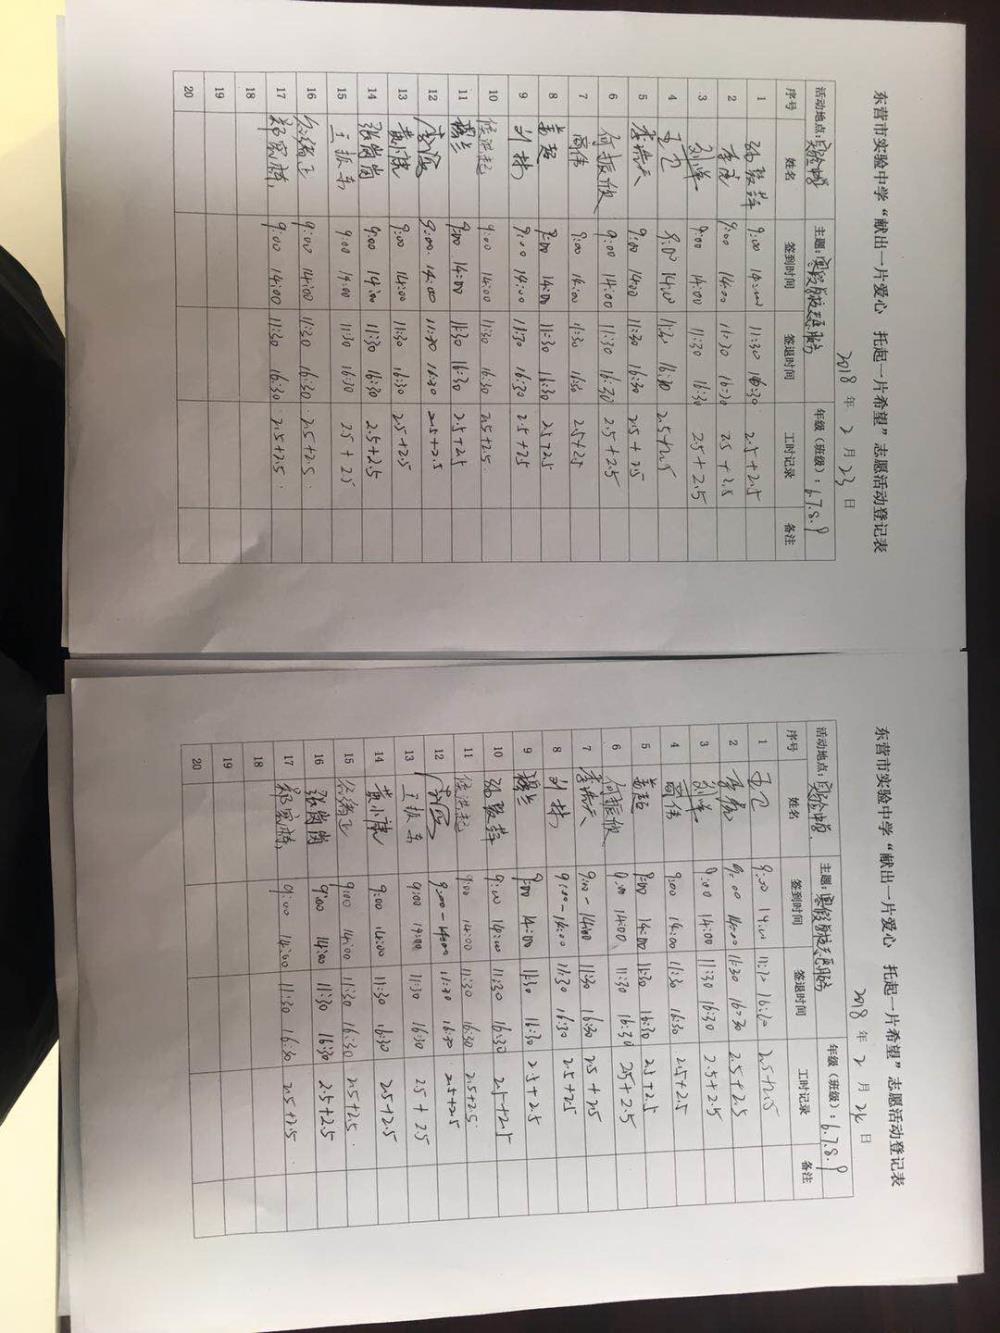 东营市实验中学“献出一片爱心 托起一片希望”志愿活动登记表
2018 年 2 月 23 日
活动地点：实验中学 主题：寒假 年级（班级）：6.7.8.9
序号 姓名 签到时间 签退时间 工时记录 备注
1 9:00 14:00 11:30 16:30 2.5+2.5
2 9:00 14:00 11:30 16:30 2.5+2.5
3 刘军 9:00 14:00 11:30 16:30 2.5+2.5
4 9:00 14:00 11:30 16:30 2.5+2.5
5 李浩天 9:00 14:00 11:30 16:30 2.5+2.5
6 何振欣 9:00 14:00 11:30 16:30 2.5+2.5
7 高伟 9:00 14:00 11:30 16:30 2.5+2.5
8 姜超 9:00 14:00 11:30 16:30 2.5+2.5
9 刘林 9:00 14:00 11:30 16:30 2.5+2.5
10 9:00 14:00 11:30 16:30 2.5+2.5
11 穆兰 9:00 14:00 11:30 16:30 2.5+2.5
12 9:00 14:00 11:30 16:30 2.5+2.5
13 9:00 14:00 11:30 16:30 2.5+2.5
14 张岗岗 9:00 14:00 11:30 16:30 2.5+2.5
15 王振东 9:00 14:00 11:30 16:30 2.5+2.5
16 9:00 14:00 11:30 16:30 2.5+2.5
17 9:00 14:00 11:30 16:30 2.5+2.5
18
19
20
东营市实验中学“献出一片爱心 托起一片希望”志愿活动登记表
2018 年 2 月 24 日
活动地点：实验中学 主题：寒假 年级（班级）：6.7.8.9
序号 姓名 签到时间 签退时间 工时记录 备注
1 9:00 14:00 11:30 16:30 2.5+2.5
2 9:00 14:00 11:30 16:30 2.5+2.5
3 刘军 9:00 14:00 11:30 16:30 2.5+2.5
4 高伟 9:00 14:00 11:30 16:30 2.5+2.5
5 姜超 9:00 14:00 11:30 16:30 2.5+2.5
6 何振欣 9:00 14:00 11:30 16:30 2.5+2.5
7 李浩天 9:00-14:00 11:30 16:30 2.5+2.5
8 刘林 9:00-14:00 11:30 16:30 2.5+2.5
9 穆兰 9:00 14:00 11:30 16:30 2.5+2.5
10 9:00 14:00 11:30 16:30 2.5+2.5
11 9:00 14:00 11:30 16:30 2.5+2.5
12 9:00-14:00 11:30 16:30 2.5+2.5
13 王振东 9:00 14:00 11:30 16:30 2.5+2.5
14 9:00 14:00 11:30 16:30 2.5+2.5
15 9:00 14:00 11:30 16:30 2.5+2.5
16 张岗岗 9:00 14:00 11:30 16:30 2.5+2.5
17 9:00 14:00 11:30 16:30 2.5+2.5
18
19
20